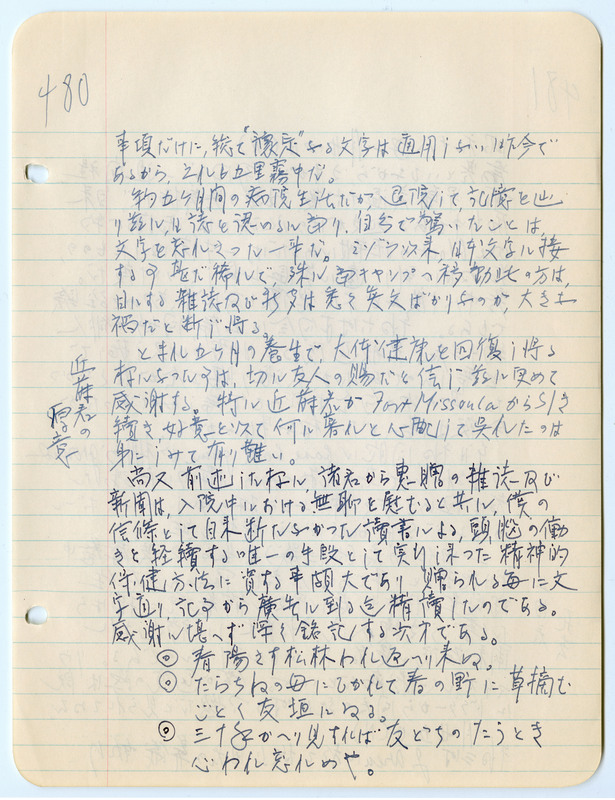 480
事項だけに、総て“譲定”なる文字は適用しない昨今で
あるから、それも五里霧中だ。
約五ケ月間の病院生活だが、退院して記憶を辿
り茲に、日誌を認めるに当り、自分で驚いたことは、
文字を忘れさつた一事だ。ミゾラ以来、日本文字に接
する事甚だ稀れで、殊に当キャンプへ移動此の方は、
目にする雑誌及び新聞は悉く英文ばかりなのが、大きな
禍だと断じ得る。
ともれ五ケ月の養生で、大体健康を回復し得る
様になつた事は、切に友人の賜だと信じ、茲に改めて
感謝する。特に近藤君が Fort Missoula から引き
続き、好意を以て何に暮れと心配して呉れたのは
身にしみて有り難い。
近藤君の
厚意
尚又前述した様に、諸君から恵贈の雑誌及び
新聞は、入院中における無聊を慰むると共に、僕の
信條として目来断たなかつた讀書による、頭脳の働
きを継續する唯一の手段として実行し来つた精神的
保健方法に資する事頗大であり 贈られる毎に文
字通り、記事から廣告に到る迄精讀したのである。
感謝に堪へず深く銘記する次第である。
◎ 春陽さす松林われ返へり来ぬ。
◎ たらちねの母にひかれて春の野に草摘む
ごとく友垣にゐる。
◎ 三十年かへり見すれば友どちのたうとき
心われ忘れめや。